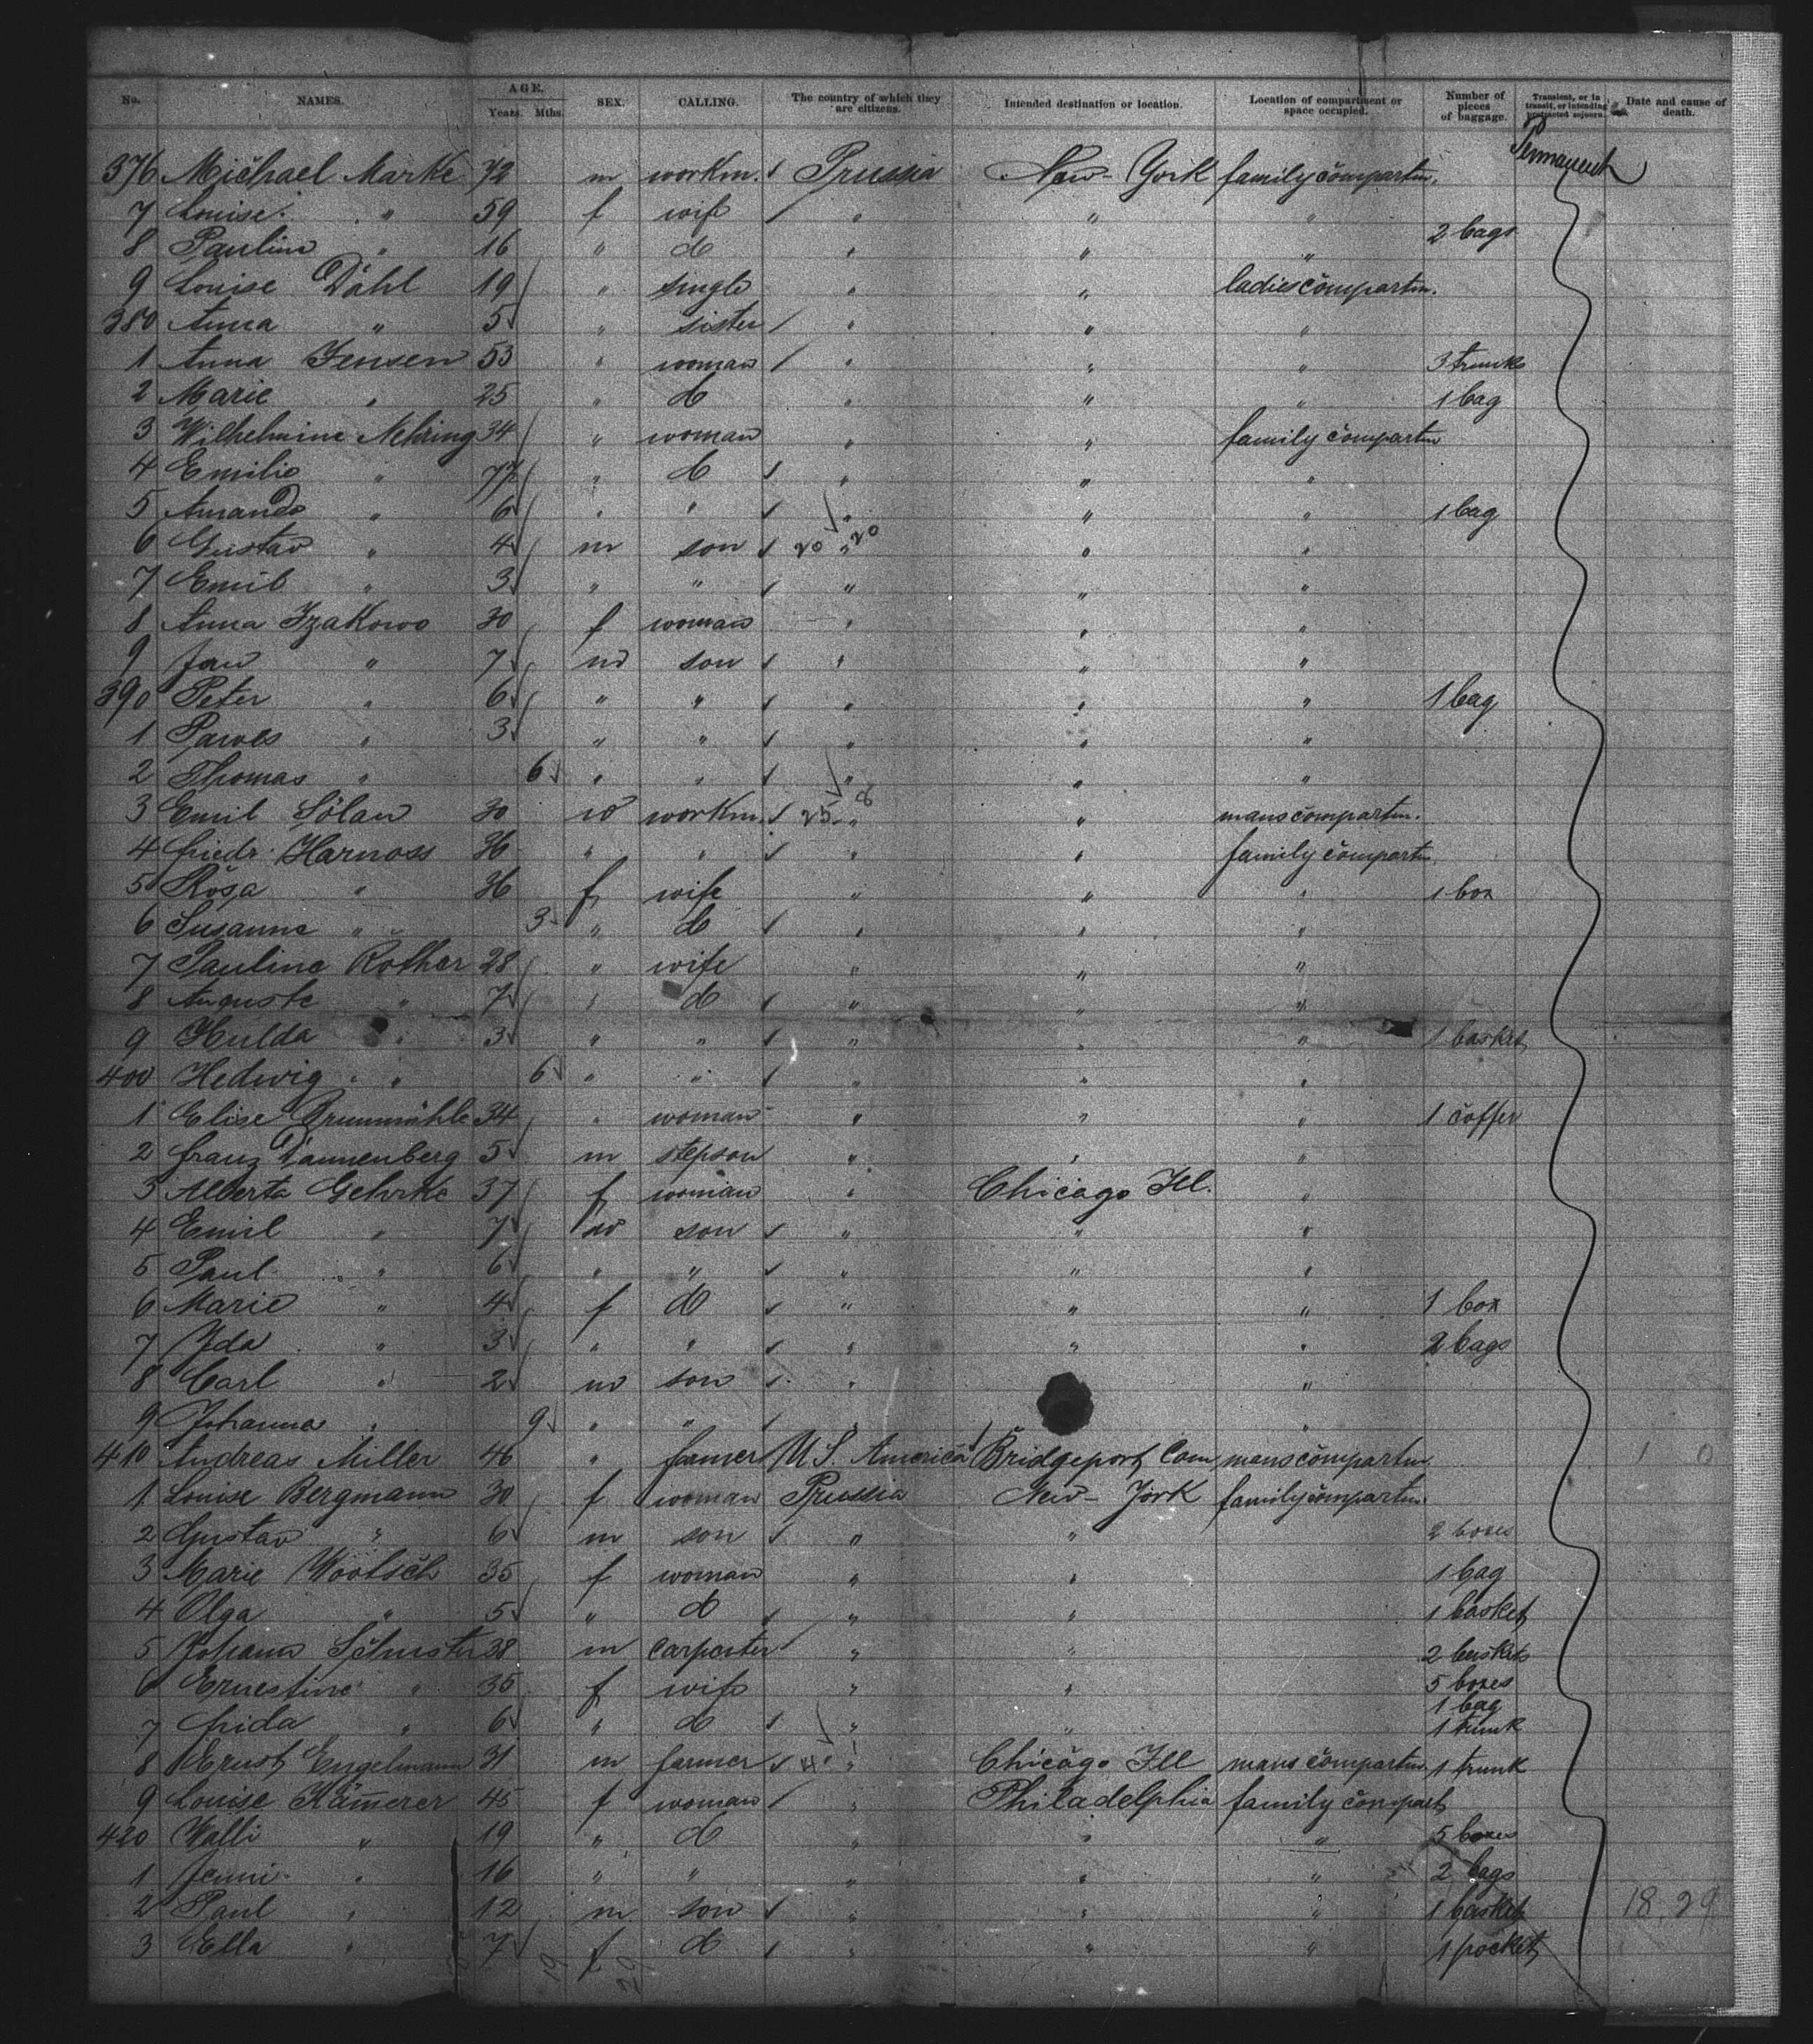 No. NAMES. AGE. Years. Mths. SEX. CALLING. The country of which they are citizens. Intended destination or location. Location of compartment or space occupied. Number of pieces of baggage. Transient, or in transit, or intending protracted sojourn. Date and cause of death.
Permanent
376 Michael Marke 72 m workm. Prussia New-York family compartm.
7 Louise " 59 f wife " " "
8 Pauline " 16 " d " " " 2 bags
9 Louise Dahl 19 " single " " ladies compartm.
380 Anna " 5 " sister " " "
1 Anna Jensen 53 " woman " " " 3 trunks
2 Marie " 25 " d " " " 1 bag
3 Wilhelmine Nehring 34 " woman " " family compartm
4 Emilie " " d " " "
5 Amanda " 6 " " " " " 1 bag
6 Gustav " 4 m son 20 " 20 " "
7 Emil " 3 " " " " "
8 Anna Izakowo 30 f woman " " "
9 Jan " 7 m son " " "
390 Peter " 6 " " " " " 1 bag
1 Pawes " 3 " " " " "
2 Thomas " 6 " " " " "
3 Emil Solan 30 m workm. 25 " 8 " mans compartm.
4 Friedr. Harnoss 36 " " " " family compartm
5 Rosa " 36 f wife " " " 1 box
6 Susanne " 3 " d " " "
7 Pauline Rother 28 " wife " " "
8 Auguste " 7 " d " " "
9 Hulda " 3 " " " " " 1 basket
400 Hedwig " 6 " " " " "
1 Elise Brummühle 34 " woman " " " 1 coffer
2 Franz Dannenberg 5 m stepson " " "
3 Alberta Gehrke 37 f woman " Chicago Ill. "
4 Emil " 7 m son " " "
5 Paul " 6 " " " " "
6 Marie " 4 f d " " " 1 box
7 Ida " 3 " " " " " 2 bags
8 Carl " 2 m son " "
9 Johanna " 9 " " " "
410 Andreas Miller 46 " famer U S. America Bridgeport Conn mans compartm 1 0
1 Louise Bergmann 30 f woman Prussia New-York family compartm.
2 Gustav " 6 m son " " 2 boxes
3 Marie Wootsch 35 f woman " " 1 bag
4 Olga " 5 " d " " 1 basket
5 Johann Schuster 38 m carpenter " " 2 baskets
6 Ernestine " 35 f wife " " 5 boxes
1 bag
7 Frida " 6 " d " " 1 trunk
8 Ernst Engelmann 31 m farmer 4 " Chicago Ill mans compartm. 1 trunk
9 Louise Kämerer 45 f woman " Philadelphia family compart
420 Walli " 19 " d " " " 5 boxes
1 Jenni " 16 " " " " " 2 bags
2 Paul " 12 m son " " " 1 basket 18.29
3 Ella " 7 f d " " " 1 pocket
19 20